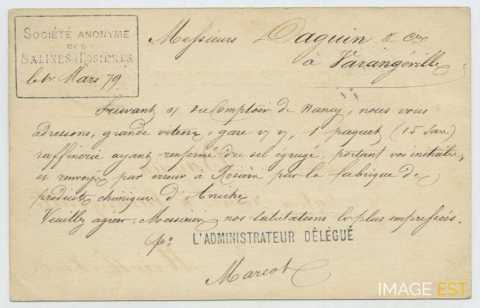 SOCIÉTÉ ANONYME
DES
SALINES de ROSIÈRES
le 1er Mars 79
Messieurs Daguin & Cie
à Varangéville
Suivant du Comptoir de Nancy, nous vous
adressons, grande vitesse, gare 1 paquet (15 sacs)
raffinerie ayant renfermé du sel égrugé, portant vos initiales,
et renvoyés par erreur à Rosières par la fabrique de
produits chimiques d'Aniche
Veuillez agréer, Messieurs, nos salutations les plus empressées.
L'ADMINISTRATEUR DÉLÉGUÉ
Marcot
IMAGE EST